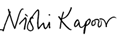 Nishi Kapoor